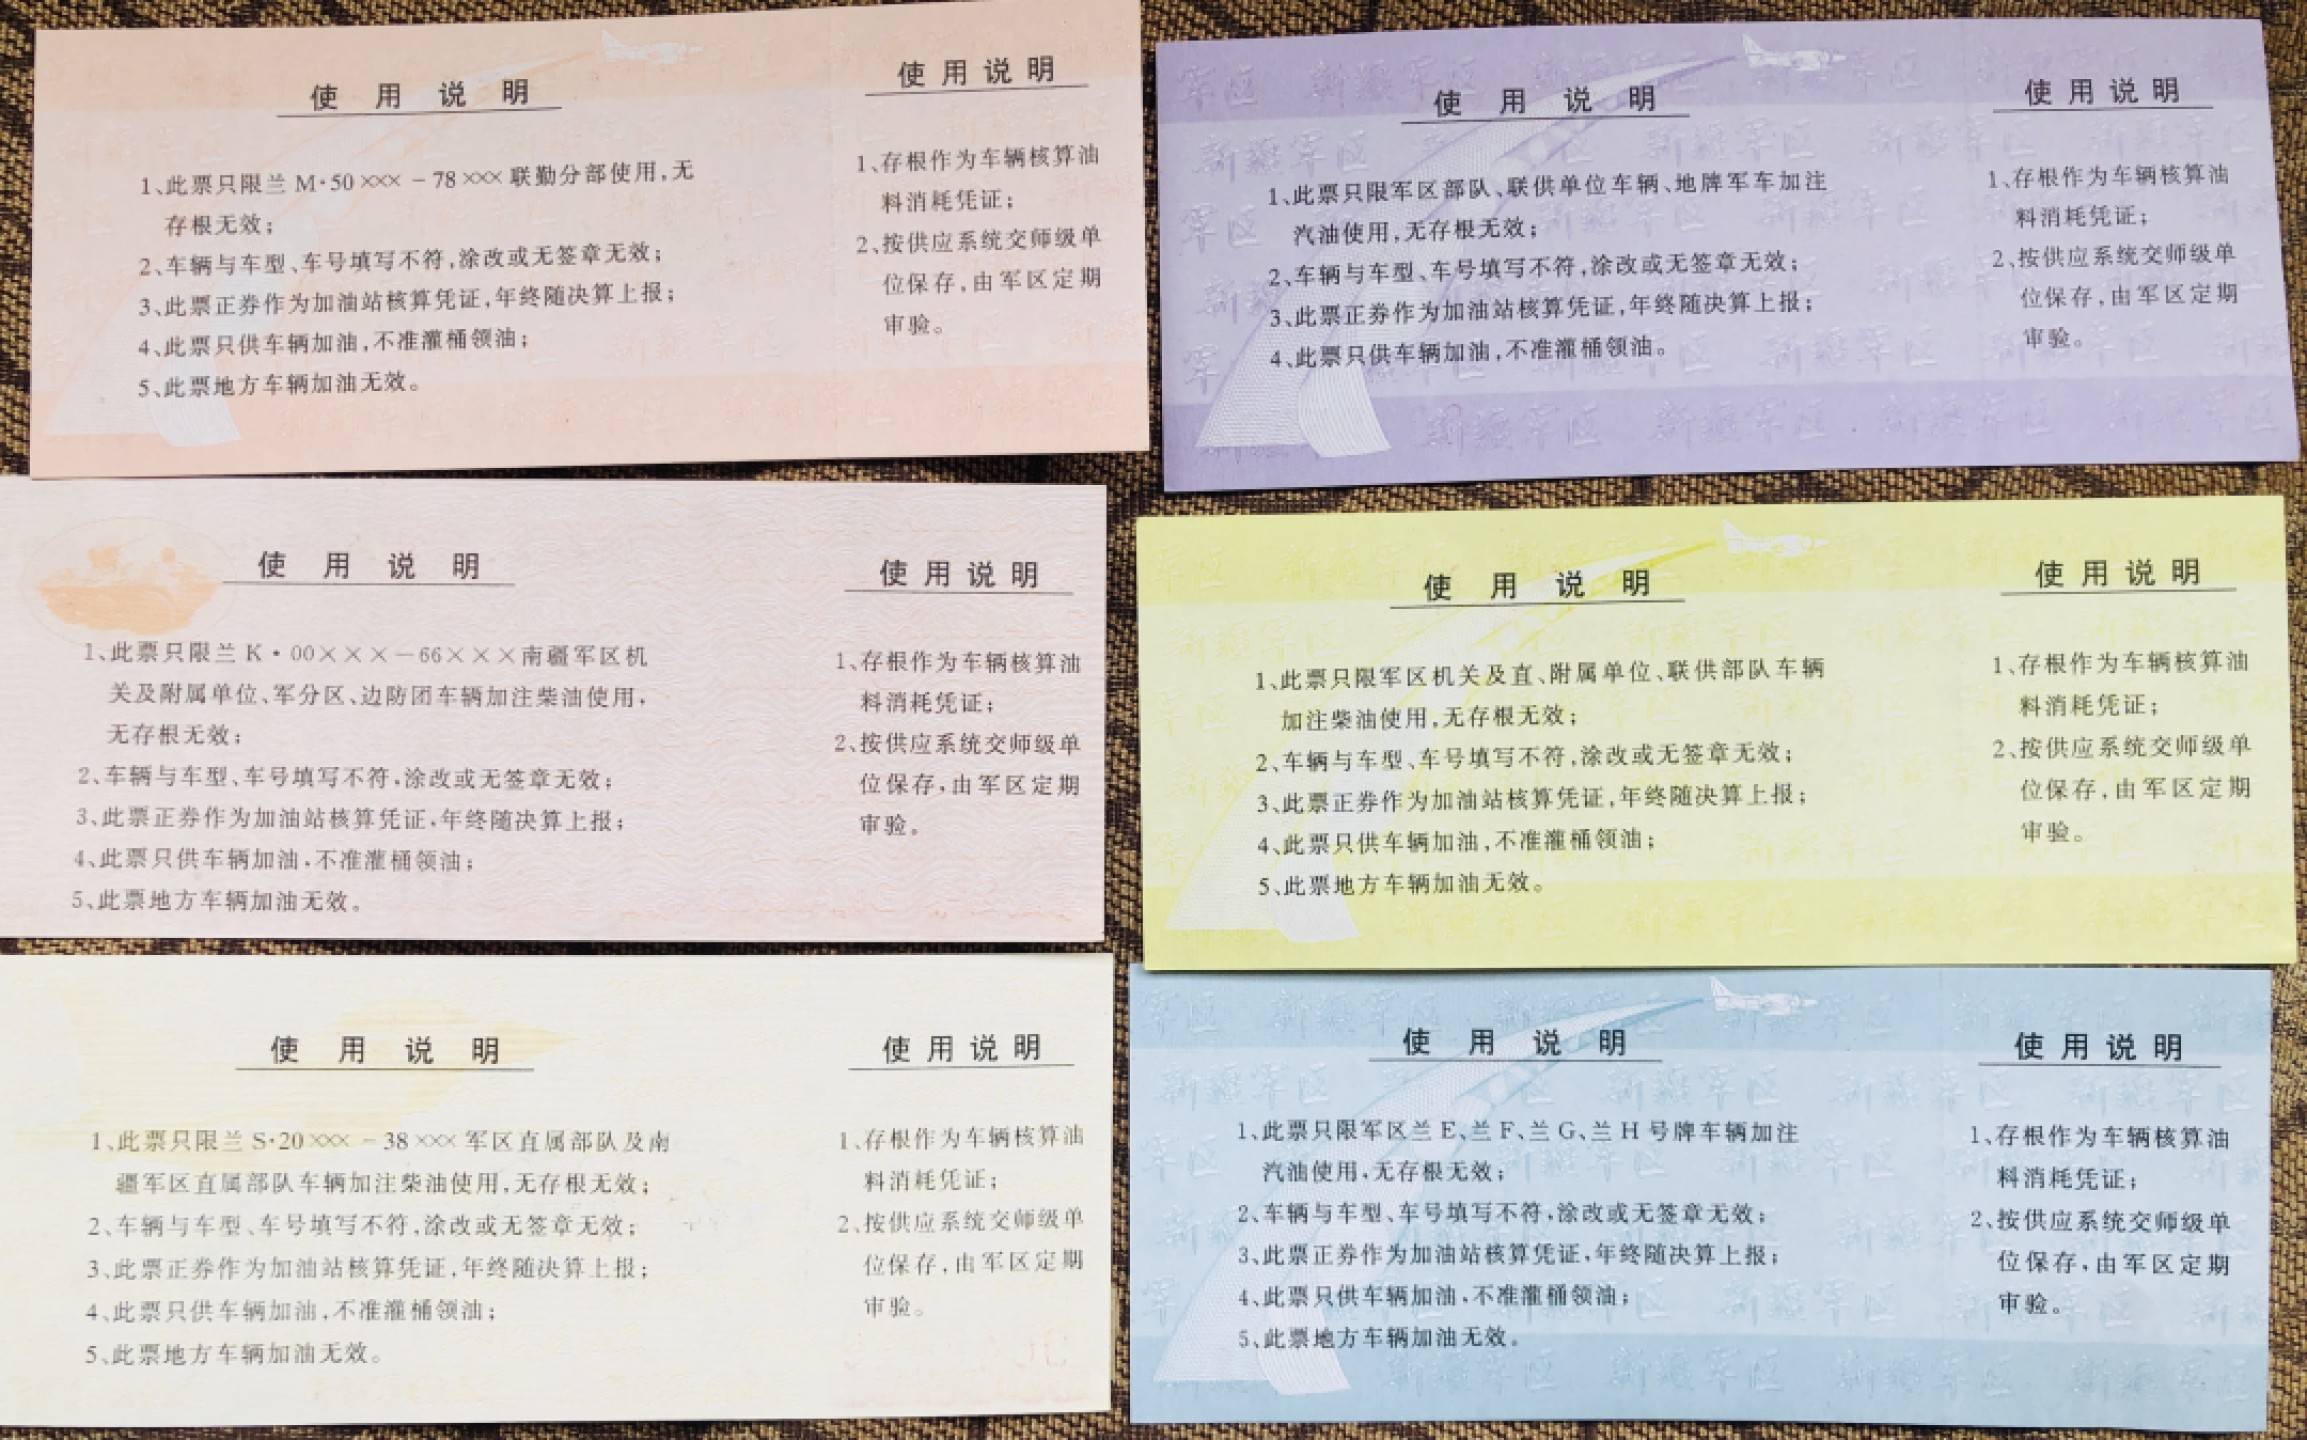 使用说明
1、此票只限兰 M·50×××－78×××联勤分部使用,无
存根无效;
2、车辆与车型、车号填写不符,涂改或无签章无效;
3、此票正券作为加油站核算凭证,年终随决算上报;
4、此票只供车辆加油,不准灌桶领油;
5、此票地方车辆加油无效。
使用说明
1、存根作为车辆核算油
料消耗凭证;
2、按供应系统交师级单
位保存,由军区定期
审验。
使用说明
1、此票只限军区部队、联供单位车辆、地牌军车加注
汽油使用,无存根无效;
2、车辆与车型、车号填写不符,涂改或无签章无效;
3、此票正券作为加油站核算凭证,年终随决算上报;
4、此票只供车辆加油,不准灌桶领油。
使用说明
1、存根作为车辆核算油
料消耗凭证;
2、按供应系统交师级单
位保存,由军区定期
审验。
使用说明
1、此票只限兰 K·00×××－66×××南疆军区机
关及附属单位、军分区、边防团车辆加注柴油使用,
无存根无效;
2、车辆与车型、车号填写不符,涂改或无签章无效;
3、此票正券作为加油站核算凭证,年终随决算上报;
4、此票只供车辆加油,不准灌桶领油;
5、此票地方车辆加油无效。
使用说明
1、存根作为车辆核算油
料消耗凭证;
2、按供应系统交师级单
位保存,由军区定期
审验。
使用说明
1、此票只限军区机关及直、附属单位、联供部队车辆
加注柴油使用,无存根无效;
2、车辆与车型、车号填写不符,涂改或无签章无效;
3、此票正券作为加油站核算凭证,年终随决算上报;
4、此票只供车辆加油,不准灌桶领油;
5、此票地方车辆加油无效。
使用说明
1、存根作为车辆核算油
料消耗凭证;
2、按供应系统交师级单
位保存,由军区定期
审验。
使用说明
1、此票只限兰 S·20×××－38×××军区直属部队及南
疆军区直属部队车辆加注柴油使用,无存根无效;
2、车辆与车型、车号填写不符,涂改或无签章无效;
3、此票正券作为加油站核算凭证,年终随决算上报;
4、此票只供车辆加油,不准灌桶领油;
5、此票地方车辆加油无效。
使用说明
1、存根作为车辆核算油
料消耗凭证;
2、按供应系统交师级单
位保存,由军区定期
审验。
使用说明
1、此票只限军区兰 E、兰 F、兰 G、兰 H 号牌车辆加注
汽油使用,无存根无效;
2、车辆与车型、车号填写不符,涂改或无签章无效;
3、此票正券作为加油站核算凭证,年终随决算上报;
4、此票只供车辆加油,不准灌桶领油;
5、此票地方车辆加油无效。
使用说明
1、存根作为车辆核算油
料消耗凭证;
2、按供应系统交师级单
位保存,由军区定期
审验。